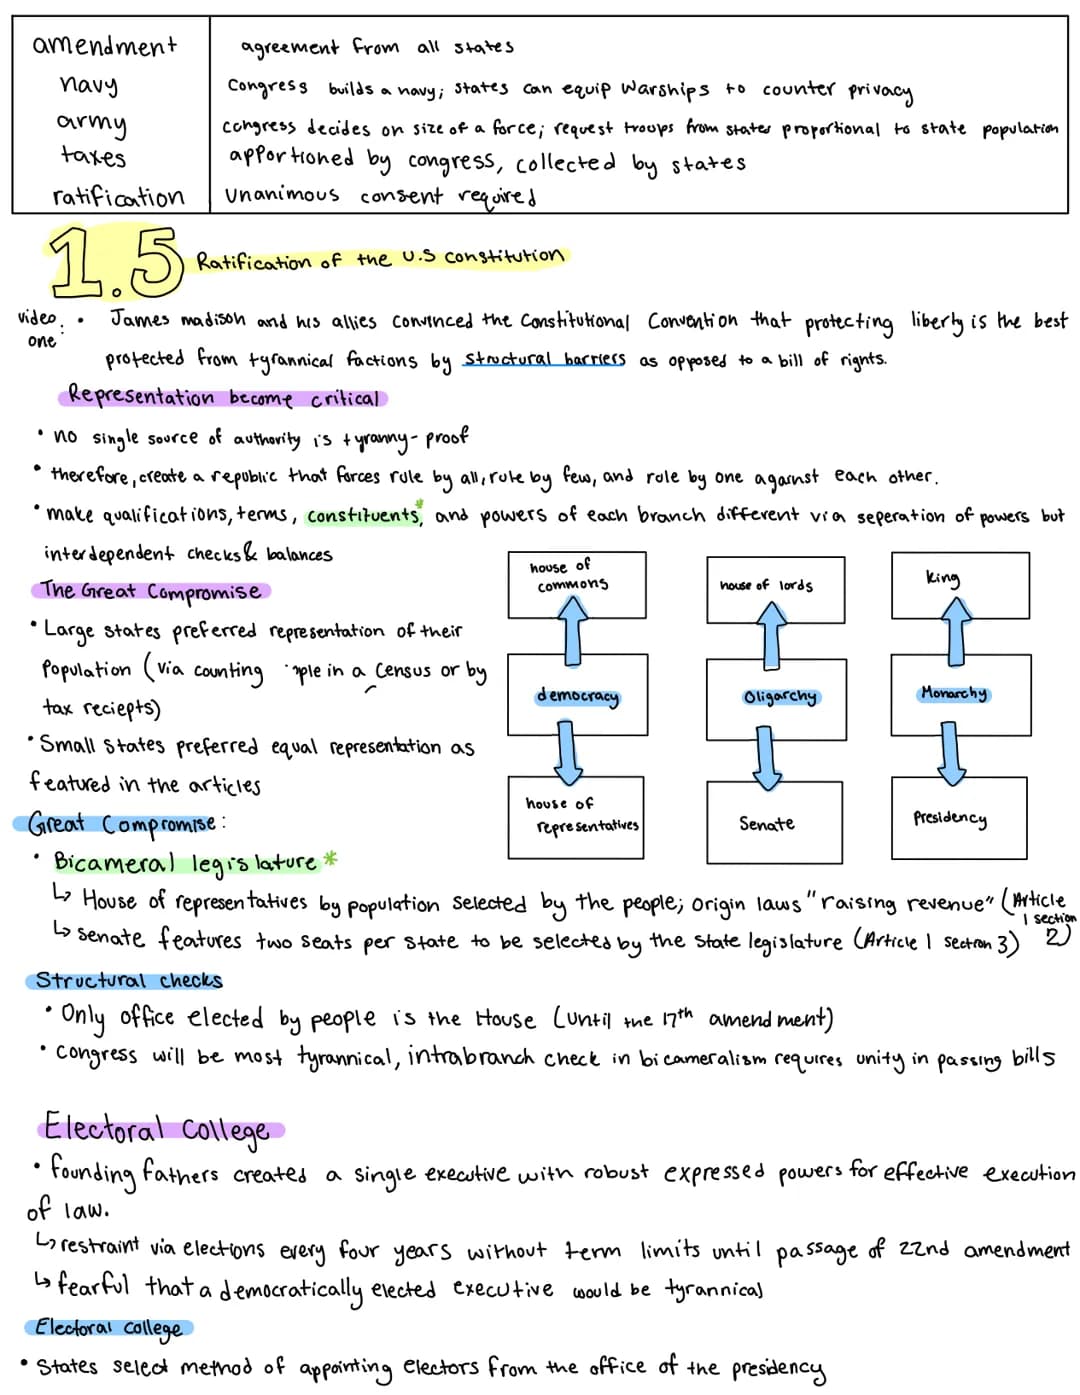 amendment agreement from all states
navy Congress builds a navy; states can equip warships to counter privacy
army congress decides on size of a force; request troops from states proportional to state population
taxes apportioned by congress, collected by states
ratification unanimous consent required
1.5 Ratification of the U.S constitution
video one: • James madison and his allies convinced the Constitutional Convention that protecting liberty is the best
protected from tyrannical factions by structural barriers as opposed to a bill of rights.
Representation become critical
• no single source of authority is tyranny-proof
• therefore, create a republic that forces rule by all, rule by few, and rule by one against each other.
• make qualifications, terms, constituents*, and powers of each branch different via seperation of powers but
interdependent checks & balances
The Great Compromise
• Large states preferred representation of their
population (via counting in a census or by
tax reciepts)
• Small States preferred equal representation as
featured in the articles
house of
commons
house of lords
king
democracy
Oligarchy
Monarchy
house of
representatives
Senate
Presidency
Great Compromise:
• Bicameral legislature *
↳ House of representatives by population selected by the people; origin laws "raising revenue" (Article
1 section
2)
↳ senate features two seats per state to be selected by the state legislature (Article 1 section 3)
Structural checks
• Only office elected by people is the House (until the 17th amendment)
• congress will be most tyrannical, intrabranch check in bicameralism requires unity in passing bills
Electoral College
• founding fathers created a single executive with robust expressed powers for effective execution
of law.
↳ restraint via elections every four years without term limits until passage of 22nd amendment
↳ fearful that a democratically elected executive would be tyrannical
Electoral college
• States select method of appointing electors from the office of the presidency